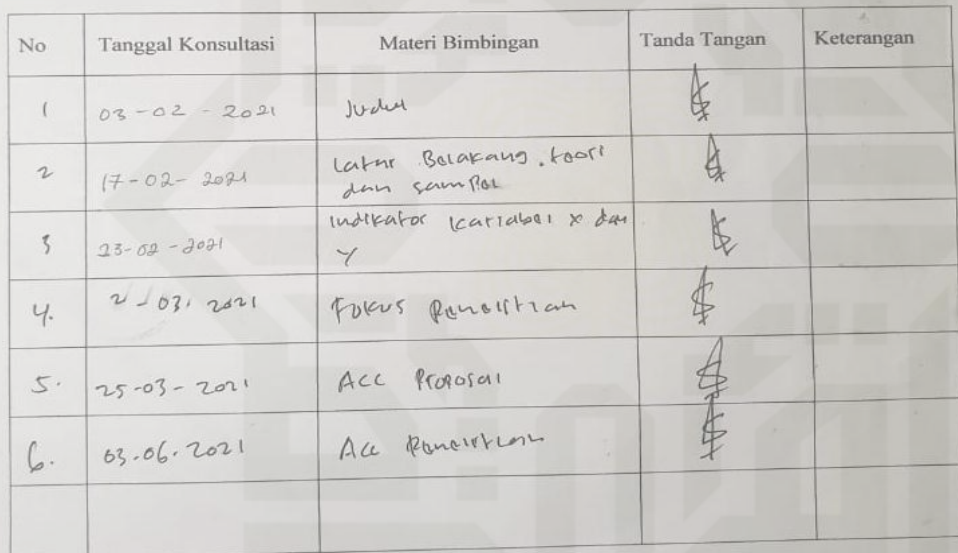 No Tanggal Konsultasi Materi Bimbingan Tanda Tangan Keterangan
1 03-02-2021 Judul
2 17-02-2021 Latar Belakang, teori
dan sampel
3 23-02-2021 Indikator Variabel X dan
Y
4. 2-03.2021 Fokus Penelitian
5. 25-03-2021 ACC Proposal
6. 03.06.2021 Acc Penelitian